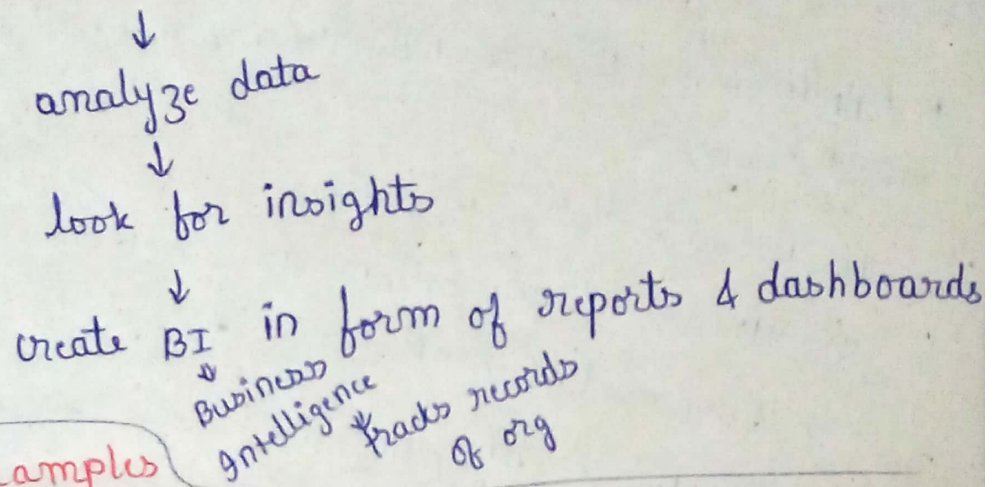 ↓
analyze data
↓
look for insights
↓
create BI in form of reports & dashboards
↓
Business
Intelligence
↓
tracks records
of org
amples